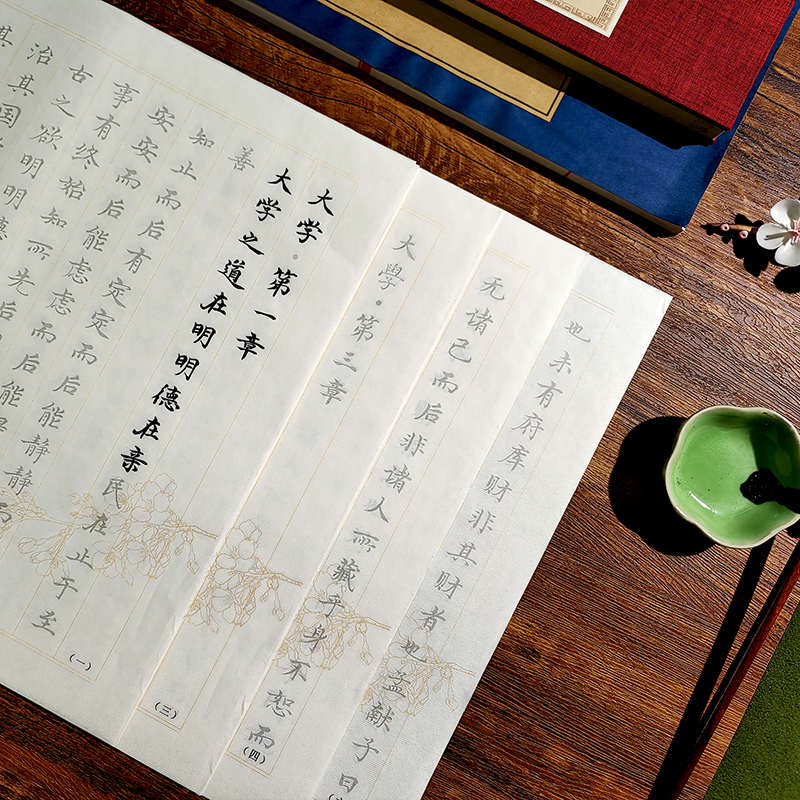 大学·第一章
大学之道在明明德在亲民在止于至
善
知止而后有定定而后能静静而
安安而后能虑虑而后能
事有终始知所先后
古之欲明明德
治其国
其
(一)
大學·第三章
(三)
无诸己而后非诸人所藏乎身不恕而
(四)
也未有府库财非其财者也孟献子曰